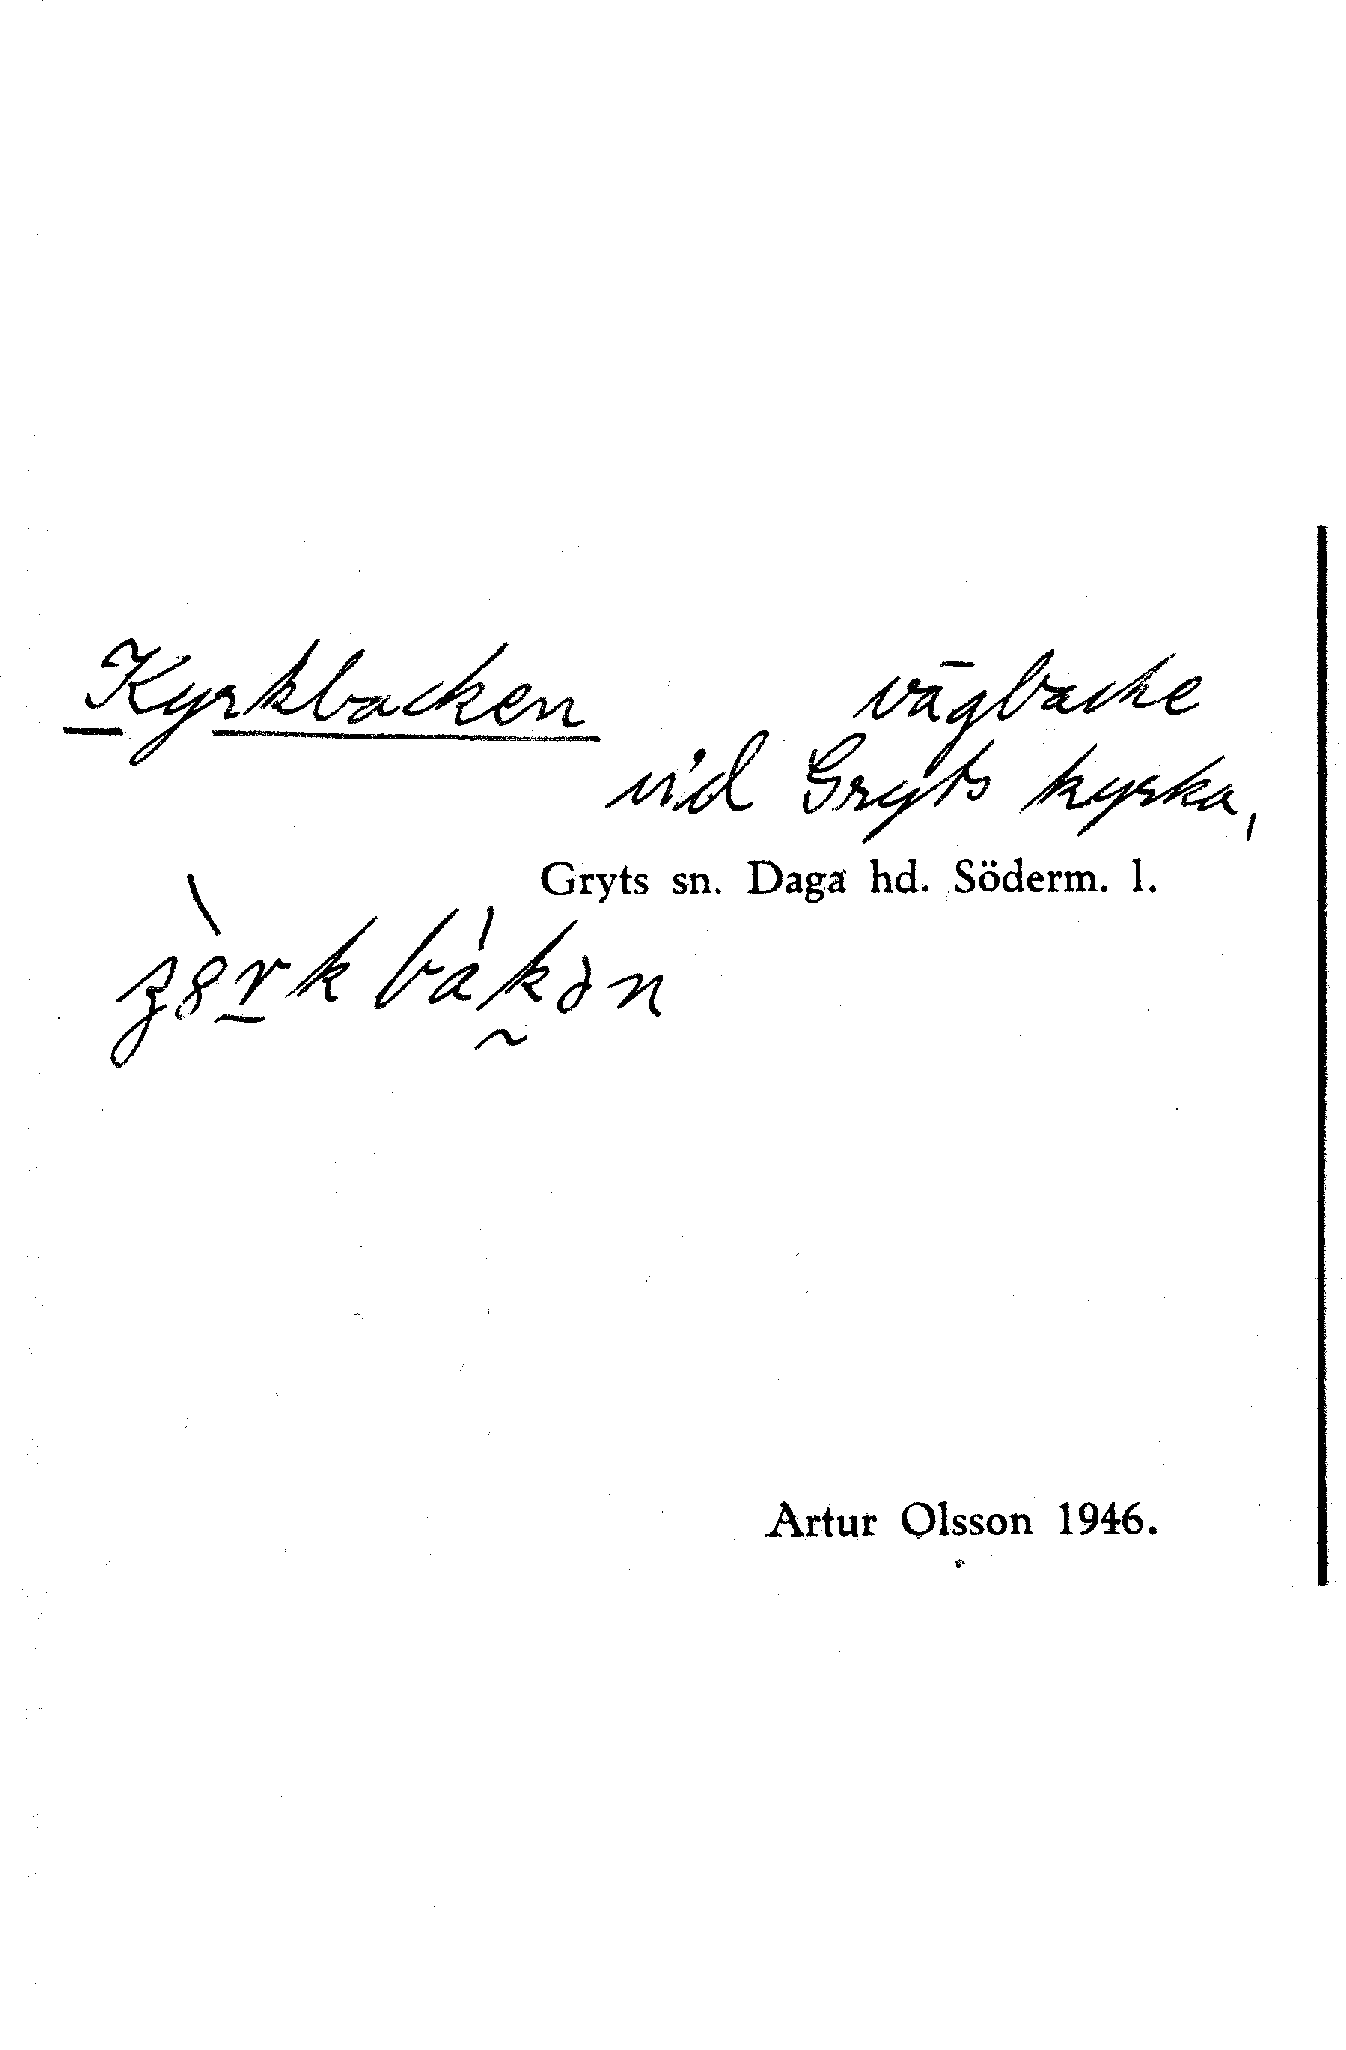 Kyrkbacken vägbacke
vid Gryts kyrka,
Gryts sn. Daga hd. Söderm. l.
Artur Olsson 1946.